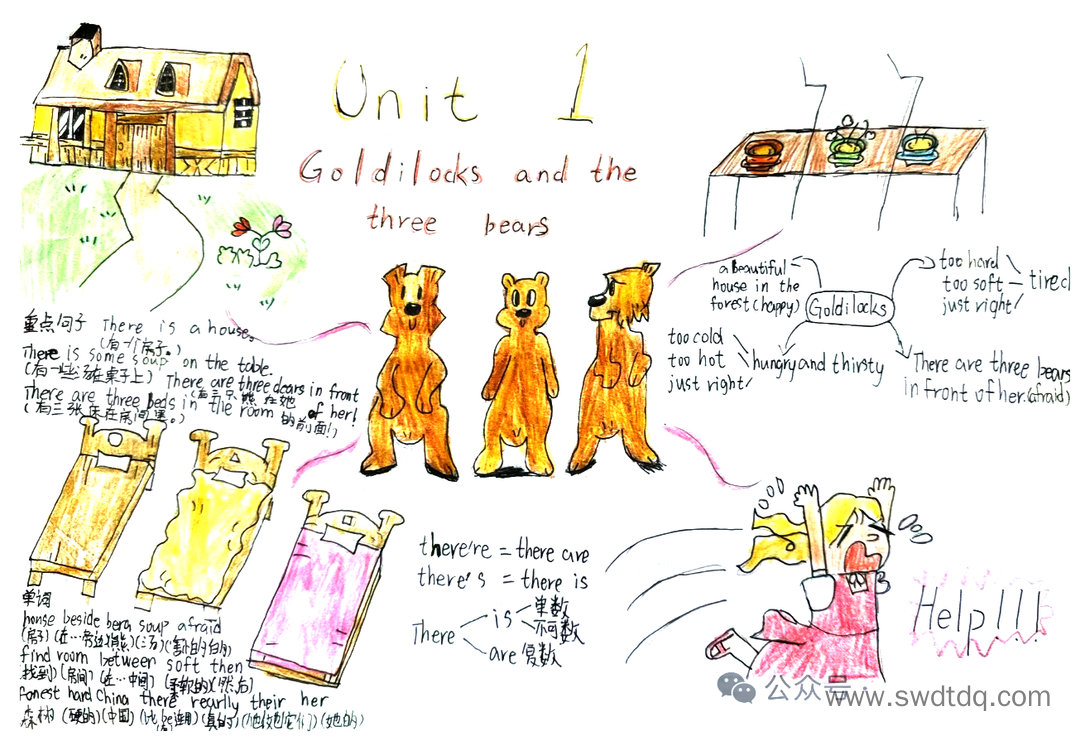 Unit 1
Goldilocks and the
three bears
a beautiful
house in the
forest (happy)
Goldilocks
too hard
too soft
just right
tired
too cold
too hot
just right
hungry and thirsty
There are three bears
in front of her. (afraid)
重点句子 There is a house.
(有一个房子。)
There is some soup on the table.
(有一些汤在桌子上) There are three dears in front
of her!
(有三只熊在她
的前面!)
There are three beds in the room
(有三张床在房间里。)
there're = there are
there's = there is
There
is
单数
不可数
are 复数
Help!!!
单词
house beside bera soup afraid
(房子) (在…旁边) (熊) (汤) (害怕的)
find room between soft then
(找到) (房间) (在…中间) (柔软的) (然后)
fonest hard China there rearlly their her
森林 (硬的) (中国) (真的) (她的)
公众号
www.swdtdq.com